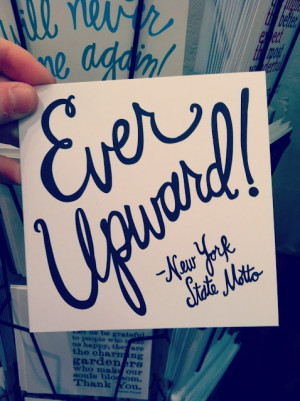 will never
me again!
Ever
Upward!
-New York
State Motto
Let us be grateful
to people who make
us happy, they are
the charming
gardeners
who make our
souls blossom.
Thank You.